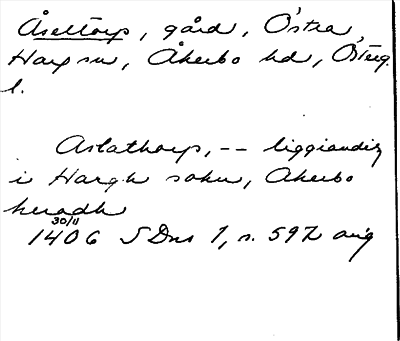 Åseltorp, gård, Östra
Harg sn, Åkerbo hd, Österg.
l.
Aslathorp, -- liggiandis
i Hargh sokn, Akerbo
heradh
30/11
1406 SDns 1, s. 592 orig